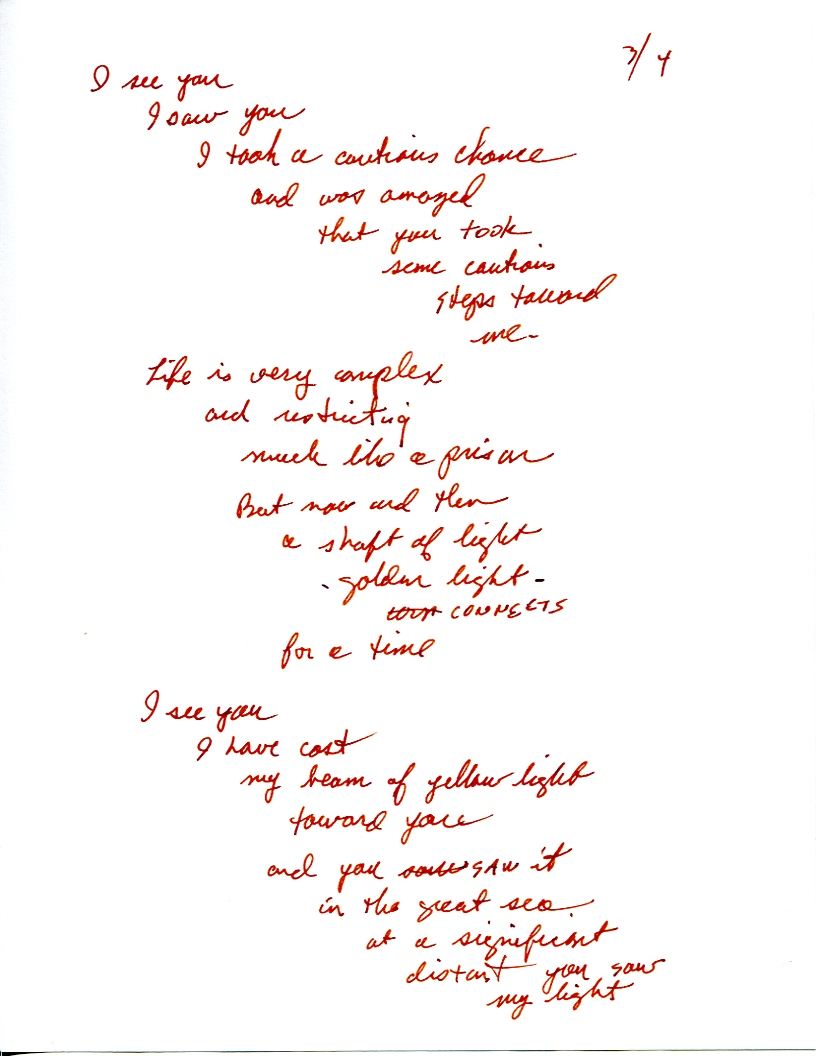 3/4
I see you
I saw you
I took a cautious chance
and was amazed
that you took
some cautious
steps toward
me-
Life is very complex
and restricting
much like a prison
But now and then
a shaft of light
- golden light -
CONNECTS
for a time
I see you
I have cast
my beam of yellow light
toward you
and you saw SAW it
in the great sea.
at a significant
distant you saw
my light